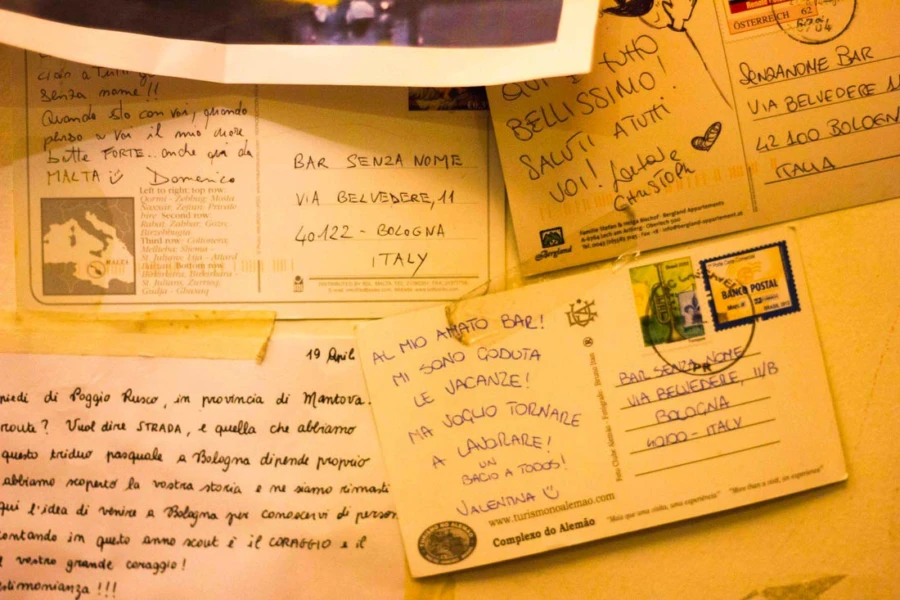 senza nome!!
Quando sto con voi, quando
penso a voi il mio cuore
batte FORTE.. anche qui da
MALTA Domenico
Left to right: top row:
Qormi - Zebbug Mosta
Naxxar, Zejtun, Private
hire Second row:
Rabat Zabbar, Gozo,
Birzebbugia
Third row:
Mellieha Sliema
St. Julians, Lija - Attard
Bottom row:
St. Julians, Zurrieq
Gudja - Ghaxaq
MALTA
BAR SENZA NOME
VIA BELVEDERE, 11
40122 - BOLOGNA
ITALY
QUI È TUTTO
BELLISSIMO!
SALUTI A TUTTI
VOI!
CHRISTOPH
Bergland
ÖSTERREICH 62
SENZANOME BAR
VIA BELVEDERE 11
42100 BOLOGN
ITALIA
19 Aprile
piedi di Poggio Rusco, in provincia di Mantova.
route? Vuol dire STRADA, e quella che abbiamo
questo triduo pasquale a Bologna dipende proprio
abbiamo scoperto la vostra storia e ne siamo rimasti
qui l'idea di venire a Bologna per conoscervi di person
contando in questo anno scout è il CORAGGIO e il
vostro grande coraggio!
stimonianza!!!
AL MIO AMATO BAR!
MI SONO GODUTA
LE VACANZE!
MA VOGLIO TORNARE
A LAVORARE!
UN
BACIO A TODOS!
VALENTINA
www.turismonoalemao.com
Complexo do Alemão
"Mais que uma visita, uma experiência" "More than a visit, an experience"
BANCO POSTAL
BAR SENZA NOME
VIA BELVEDERE, 11/B
BOLOGNA
40100 - ITALY